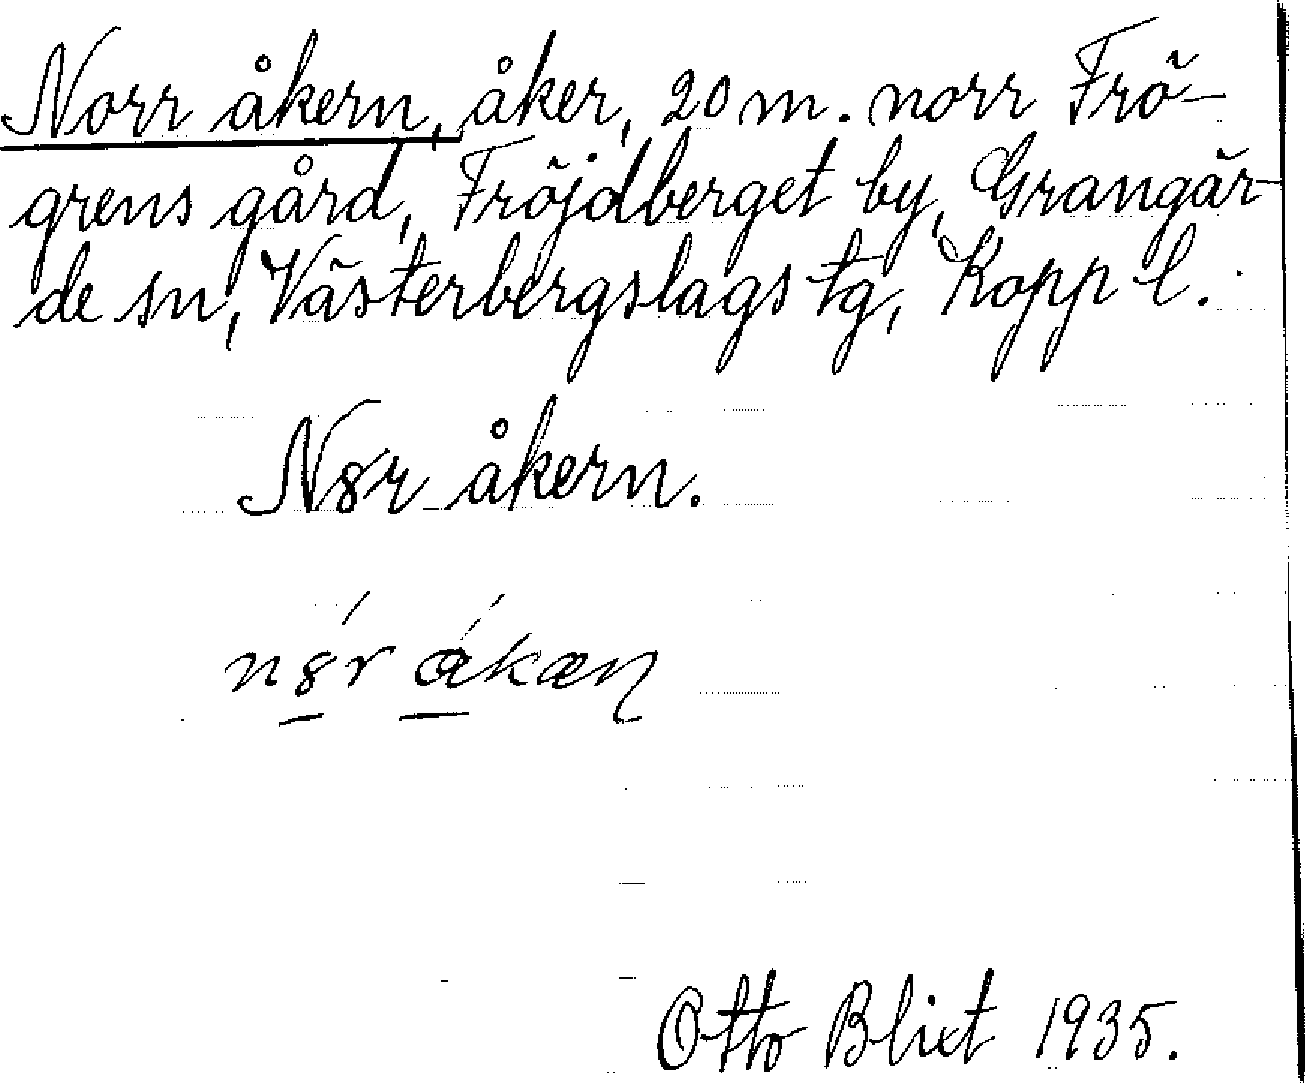 Norr åkern, åker, 20 m. norr Frö-
grens gård, Fröjdberget by, Grangär-
de sn, Västerbergslags tg, Kopp l.
N8r åkern.
n8́r ákæn
Otto Blixt 1935.